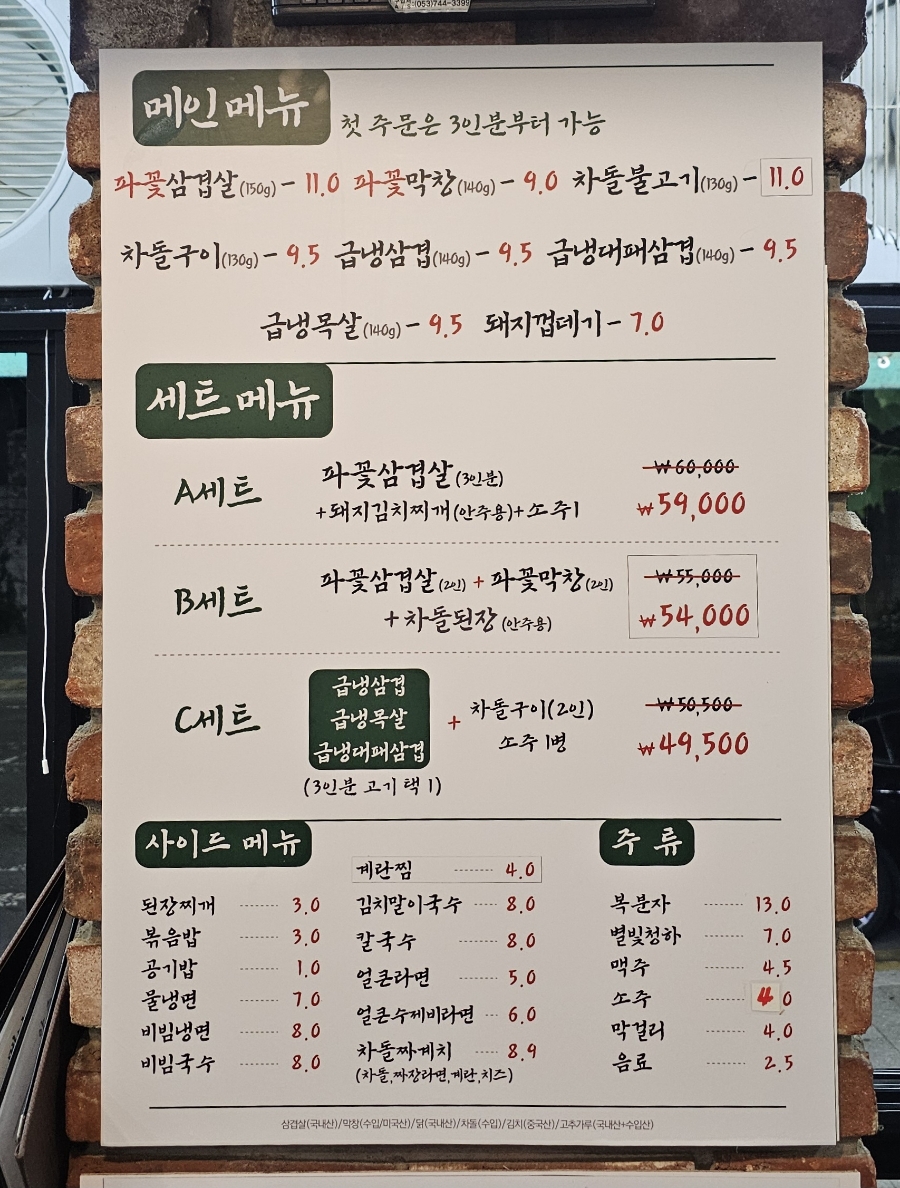 (053)744-3399
메인메뉴
첫 주문은 3인분부터 가능
파꽃삼겹살(150g) - 11.0 파꽃막창(140g) - 9.0 차돌불고기(130g) - 11.0
차돌구이(130g) - 9.5 급냉삼겹(140g) - 9.5 급냉대패삼겹(140g) - 9.5
급냉목살(140g) - 9.5 돼지껍데기 - 7.0
세트 메뉴
A세트
파꽃삼겹살(3인분)
+돼지김치찌개(안주용)+소주1
₩60,000
₩59,000
B세트
파꽃삼겹살(2인) + 파꽃막창(2인)
+ 차돌된장 (안주용)
₩55,000
₩54,000
C세트
급냉삼겹
급냉목살
급냉대패삼겹
(3인분 고기 택 1)
+ 차돌구이(2인)
소주 1병
₩50,500
₩49,500
사이드 메뉴
된장찌개 ------ 3.0
볶음밥 ------ 3.0
공기밥 ------ 1.0
물냉면 ------ 7.0
비빔냉면 ------ 8.0
비빔국수 ------ 8.0
계란찜 ------ 4.0
김치말이국수 ---- 8.0
칼국수 ------ 8.0
얼큰라면 ------ 5.0
얼큰수제비라면 -- 6.0
차돌짜계치 ---- 8.9
(차돌,짜장라면,계란,치즈)
주 류
복분자 ------ 13.0
별빛청하 ------ 7.0
맥주 ------ 4.5
소주 ------ 4 0
막걸리 ------ 4.0
음료 ------ 2.5
삼겹살(국내산)/막창(수입/미국산)/닭(국내산)/차돌(수입)/김치(중국산)/고추가루(국내산+수입산)